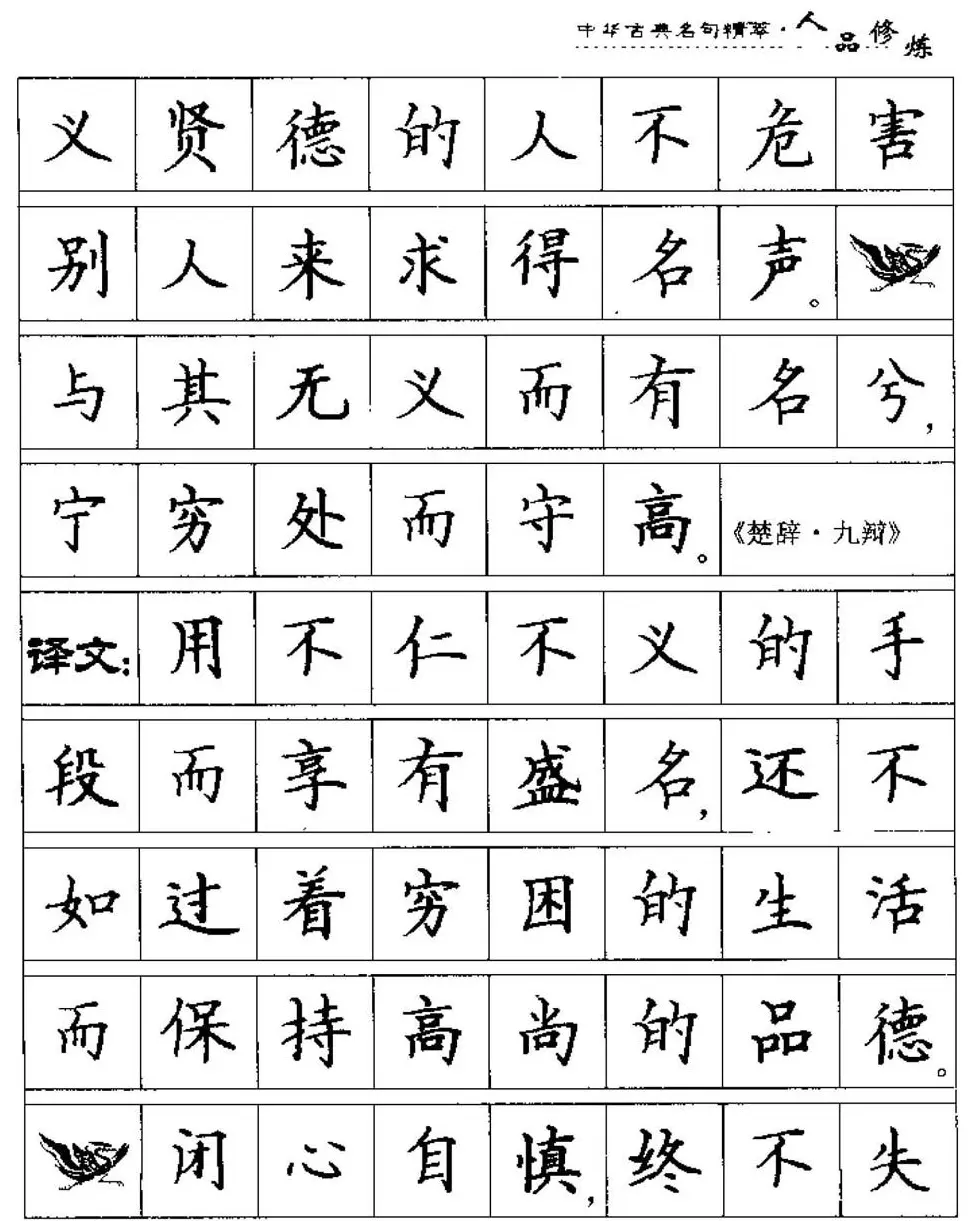 中华古典名句精萃·人品修炼
义贤德的人不危害
别人来求得名声。
与其无义而有名兮，
宁穷处而守高。《楚辞·九辩》
译文：用不仁不义的手
段而享有盛名，还不
如过着穷困的生活
而保持高尚的品德。
闭心自慎，终不失